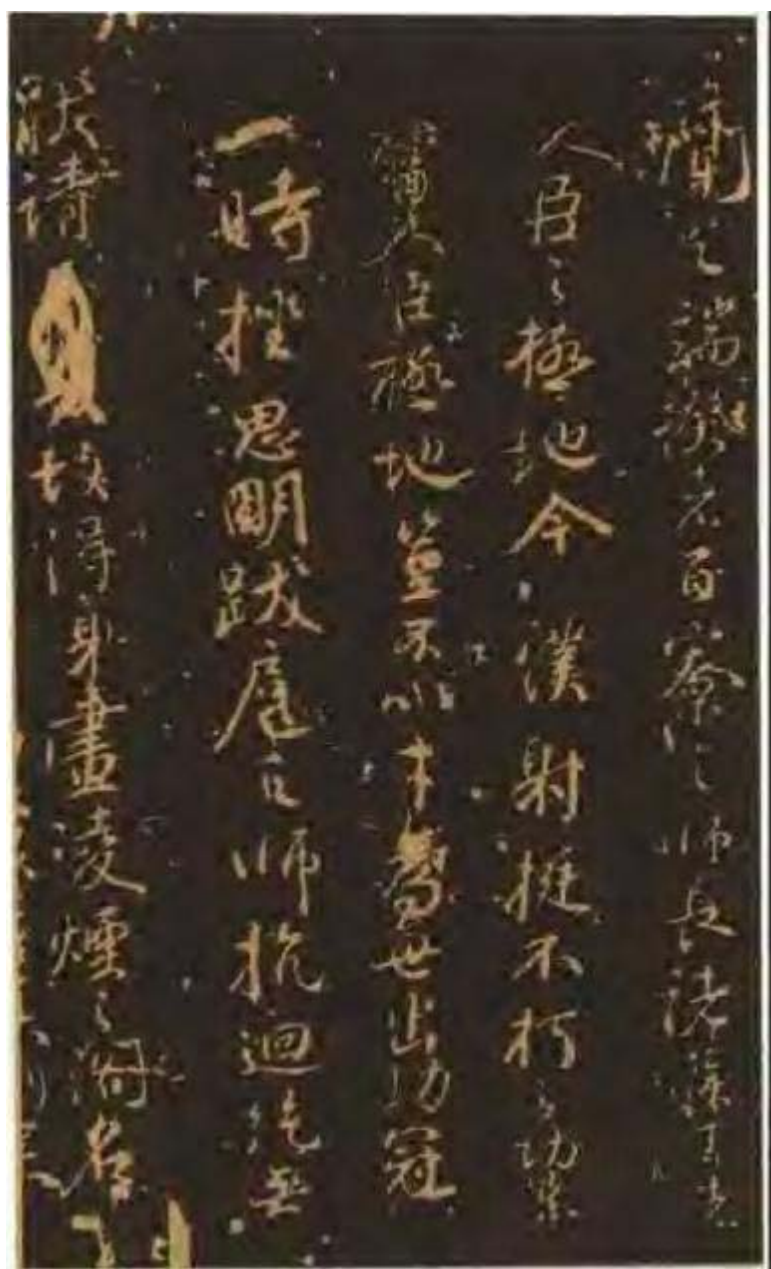 聞之端揆者百寮之師長諸侯王者
人臣之極地今僕射挺不朽之功業
當人臣極地豈不以才為世出功冠
一時挫思明跋扈之師抗迴紇無
猒請故得身畫凌煙之閣名